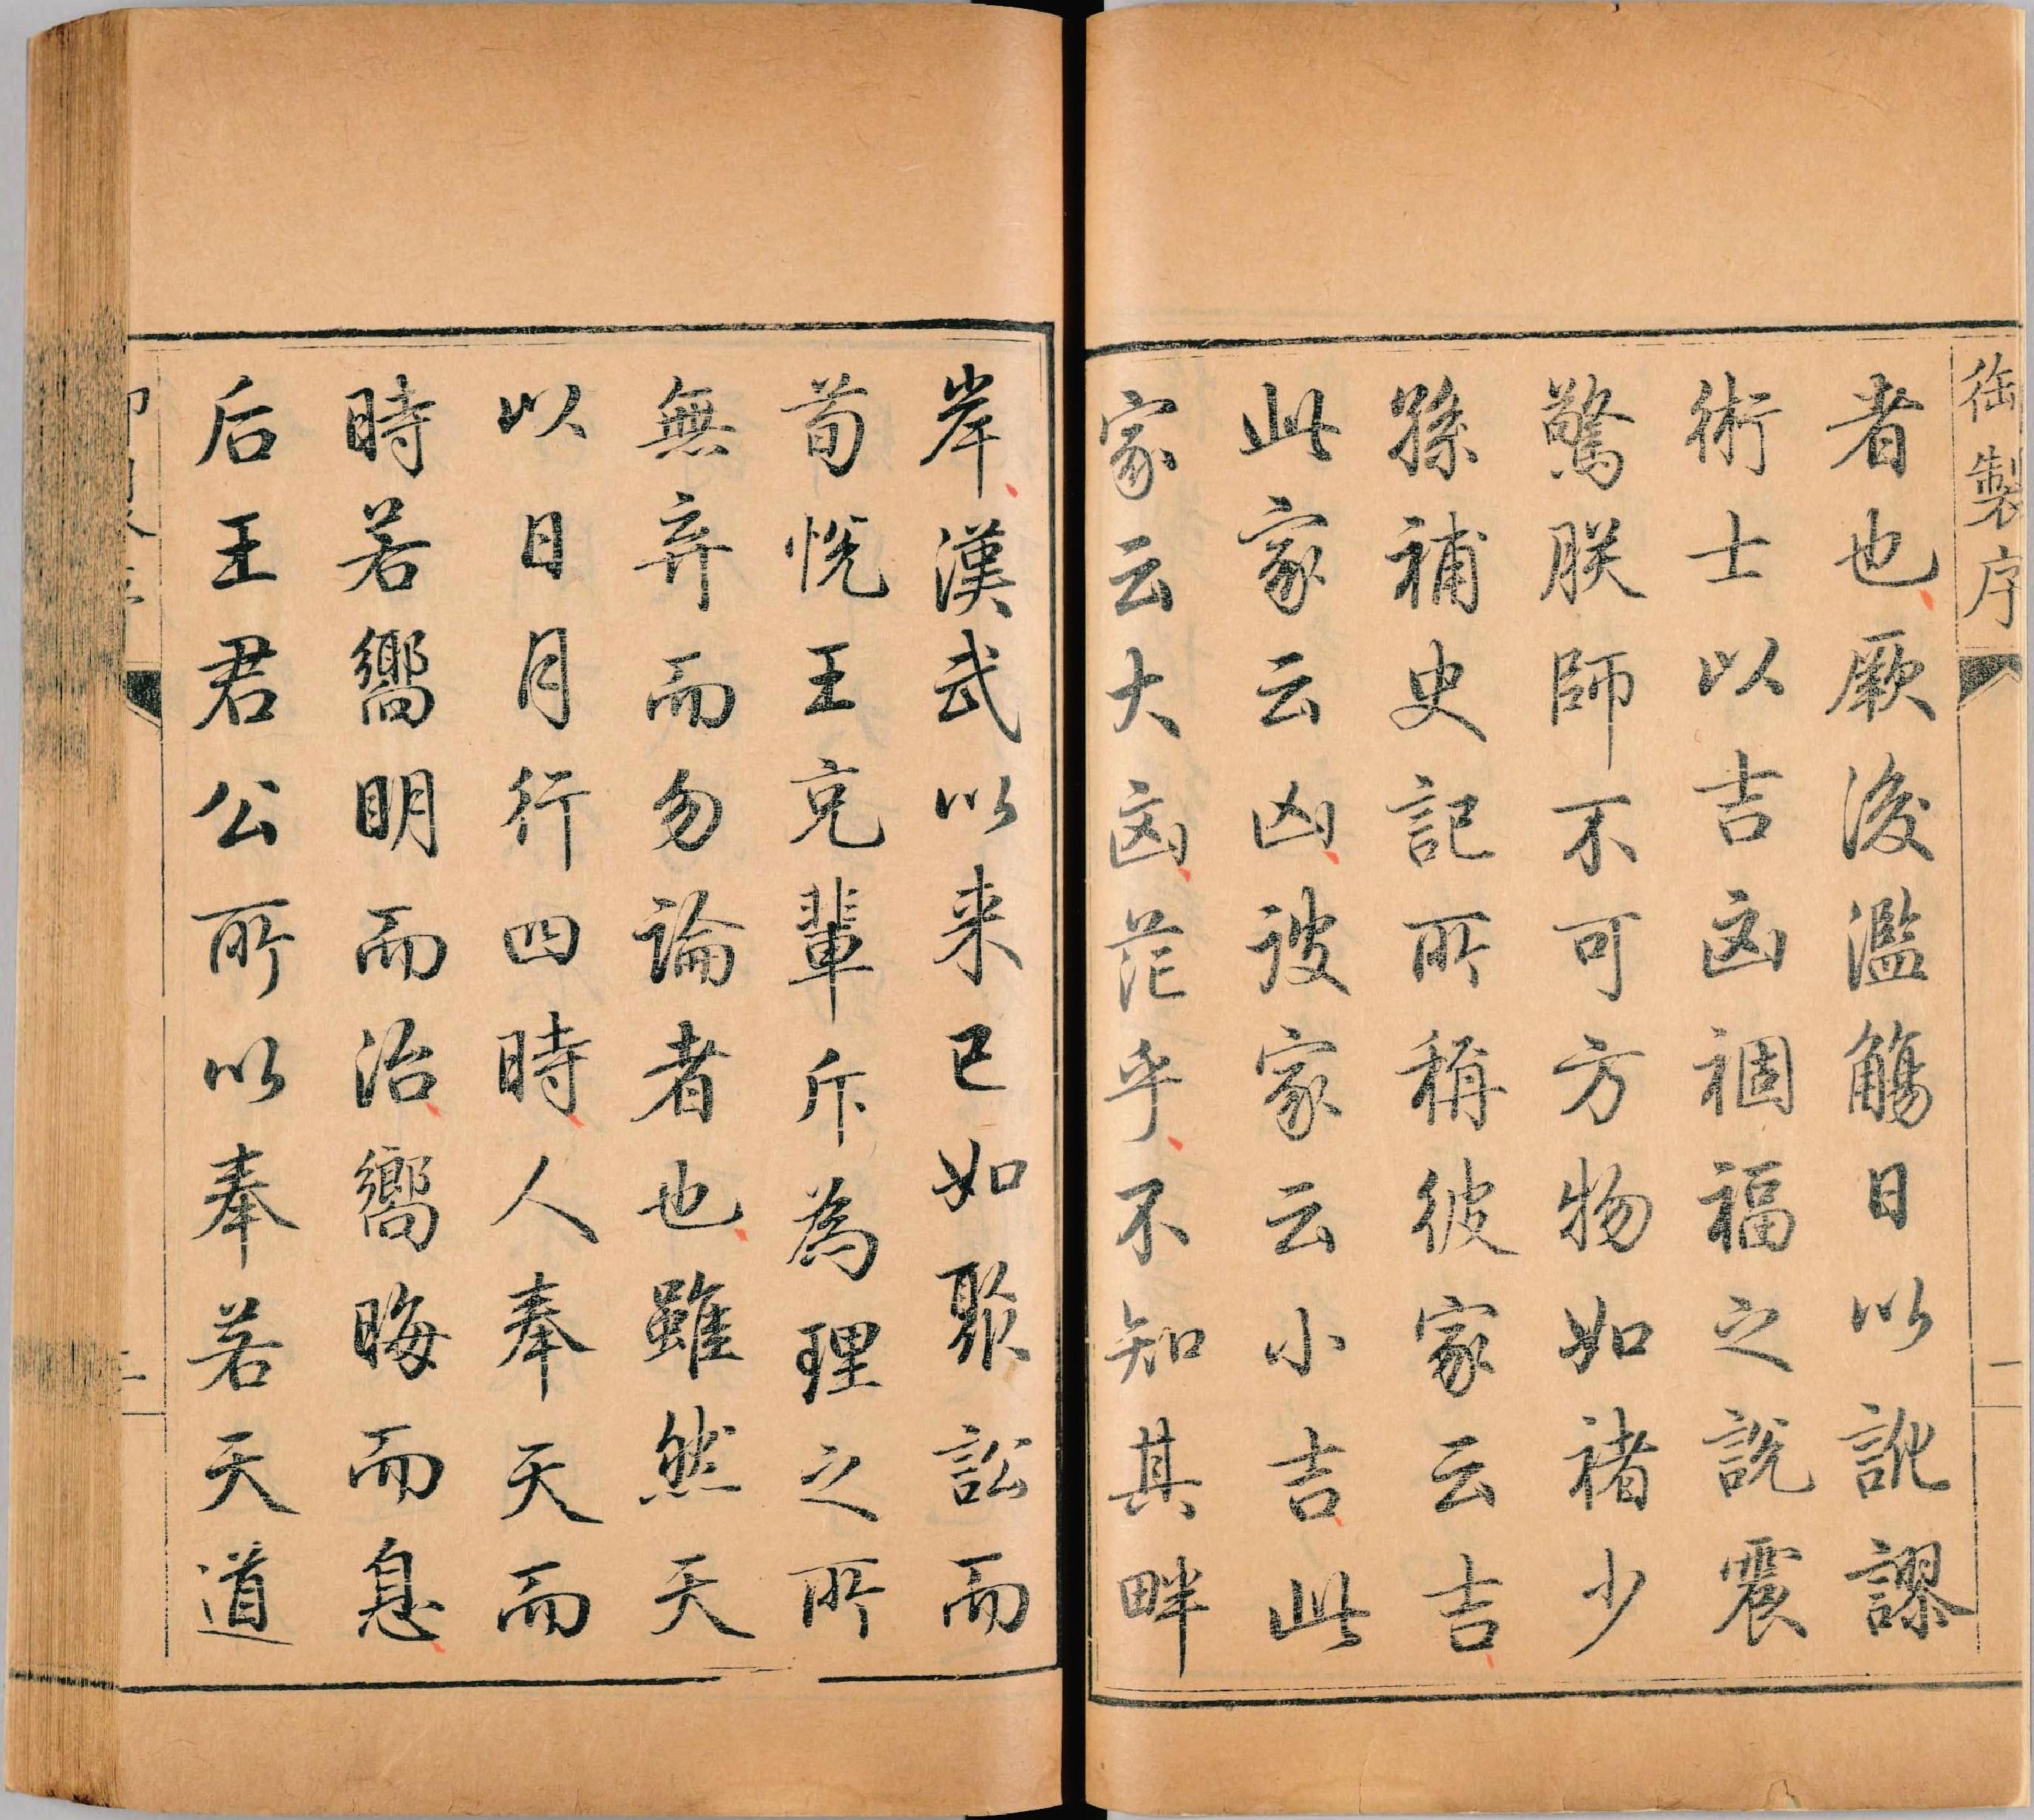 御製序
一
者也厥後濫觴日以訛謬
術士以吉凶禍福之説震
驚朕師不可方物如褚少
孫補史記所稱彼家云吉
此家云凶彼家云小吉此
家云大凶茫乎不知其畔
岸漢武以来已如聚訟而
荀悦王充輩斥為理之所
無弃而勿論者也雖然天
以日月行四時人奉天而
時若嚮明而治嚮晦而息
后王君公所以奉若天道